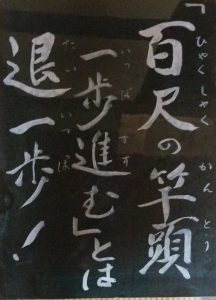 「百尺の竿頭
一歩進む」とは
退一歩！
ひゃくしゃく かんとう
いっぽ すす
たい いっぽ